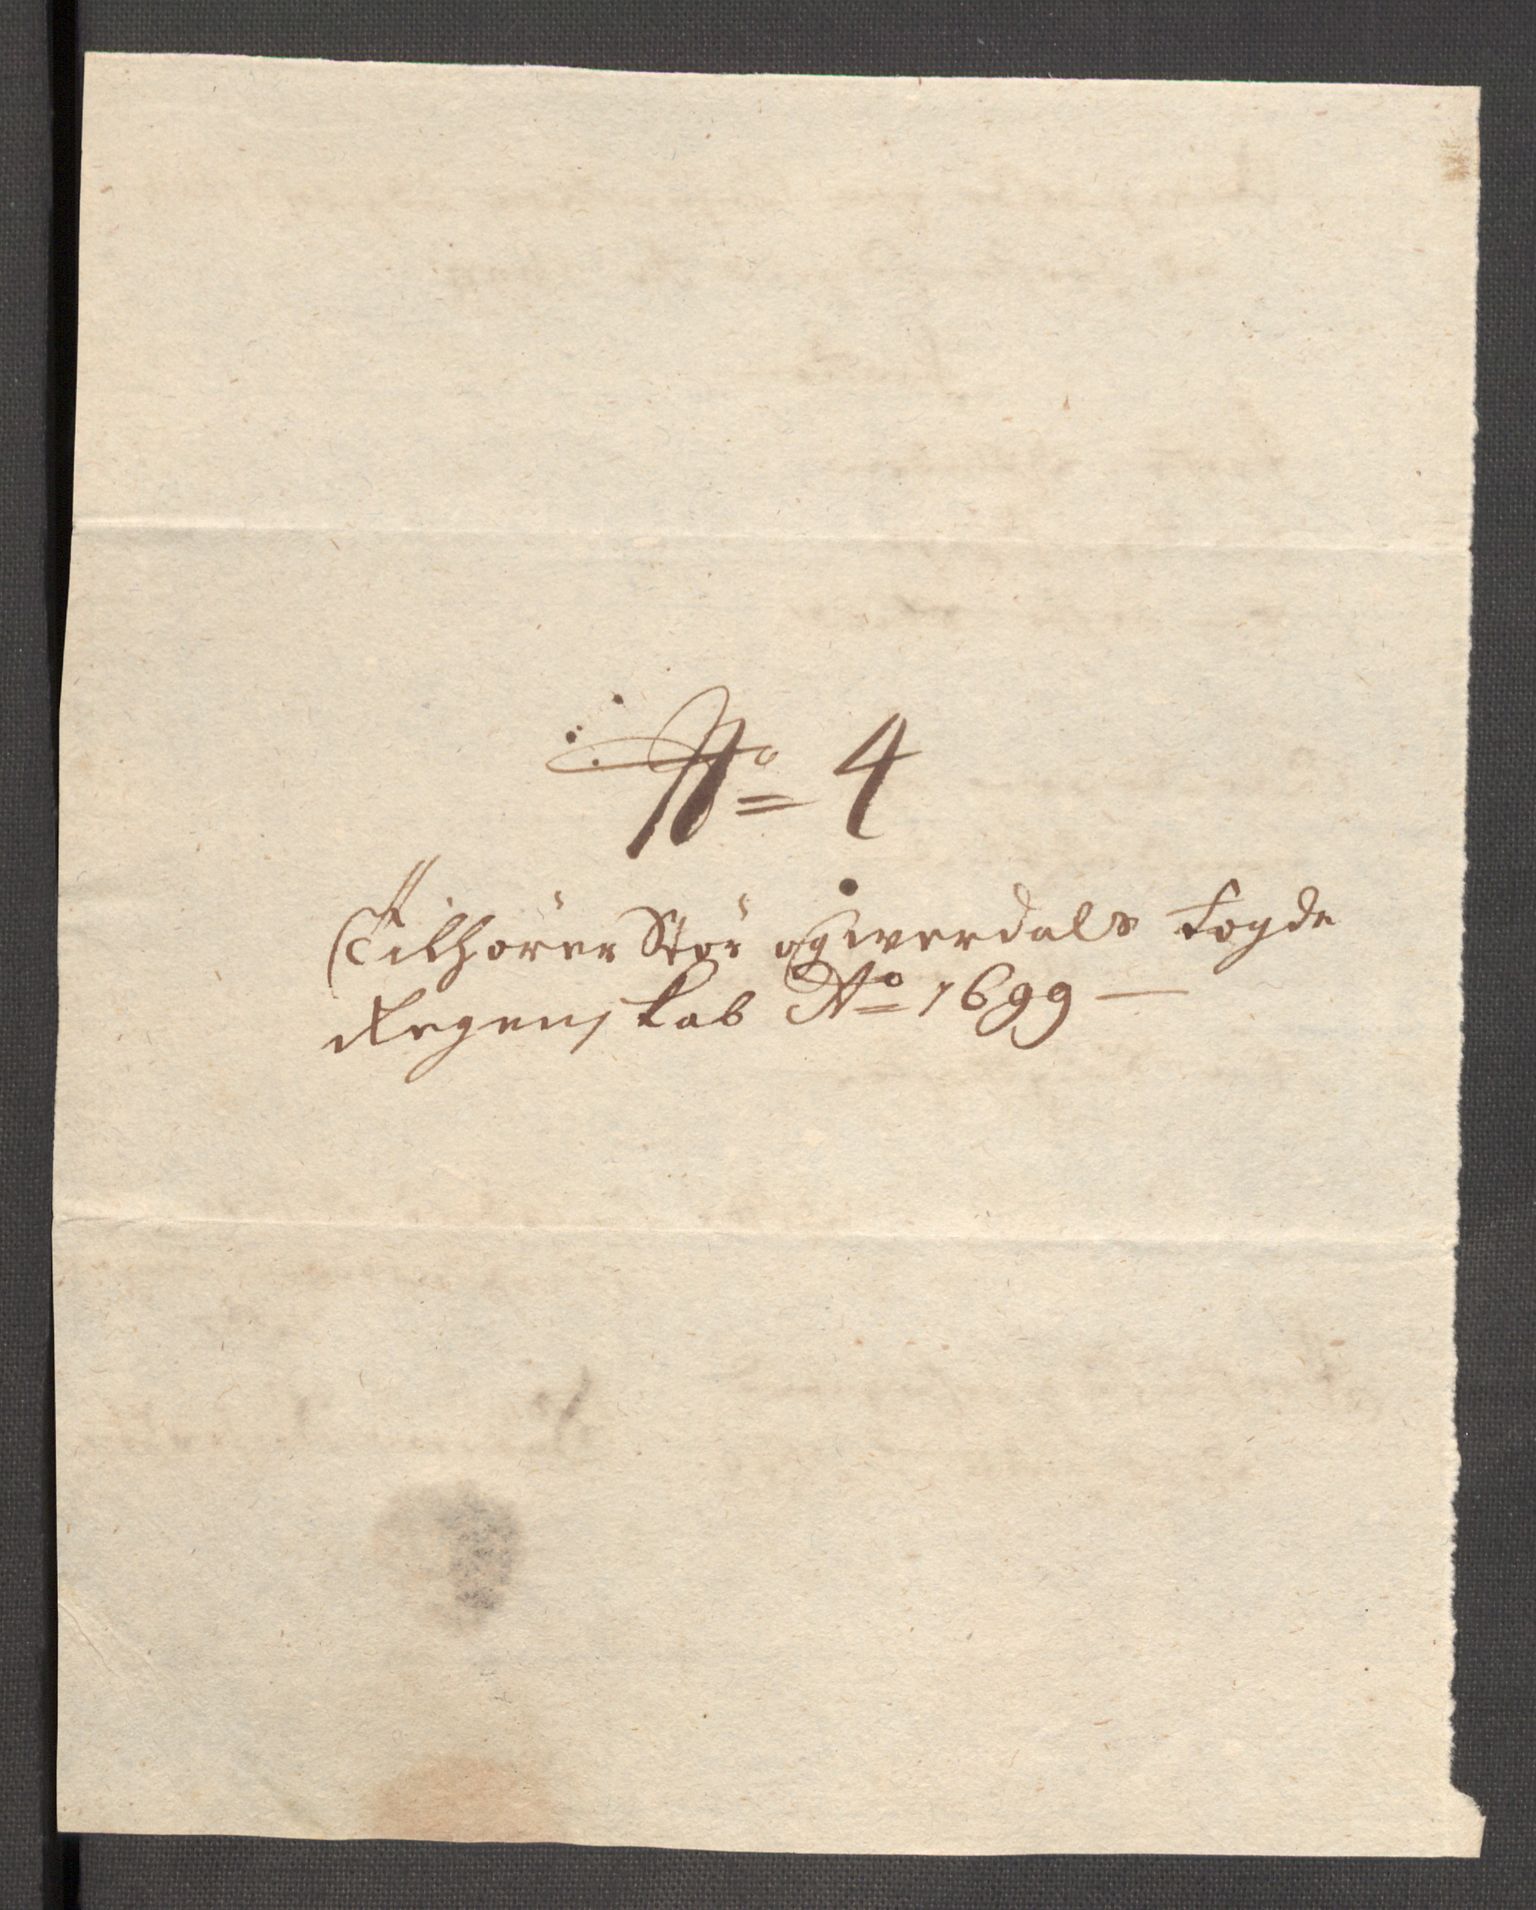 No 4
Tilhörer Stör og Werdals fogde
Regenskab Ao 1699 —